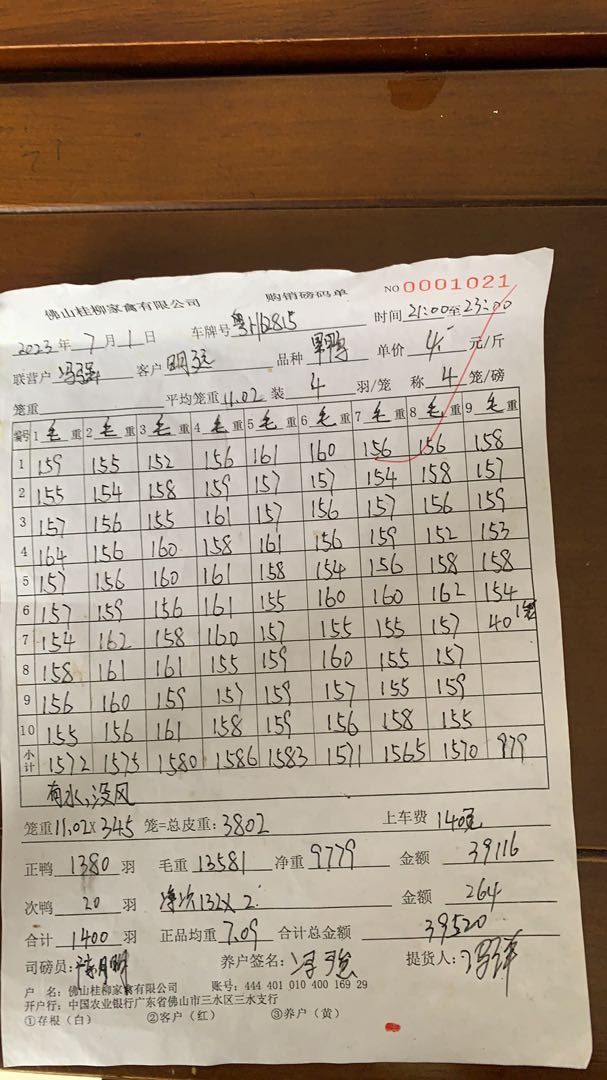 佛山桂柳家禽有限公司 购销磅码单 NO 0001021
2023年 7月 1日 车牌号 时间 21:00至23:00
联营户 冯强 客户 明 品种 单价 4 元/斤
笼重 平均笼重 11.02 装 4 羽/笼 称 4 笼/磅
编号 1 毛 重 2 毛 重 3 毛 重 4 毛 重 5 毛 重 6 毛 重 7 毛 重 8 毛 重 9 毛 重
1 159 155 152 156 161 160 156 156 158
2 155 154 158 159 157 157 154 158 157
3 157 156 155 161 157 156 157 156 159
4 164 156 160 158 161 156 159 152 153
5 157 156 160 161 158 154 156 158 158
6 157 159 156 161 155 160 160 162 154
7 154 162 158 160 157 155 155 157 40
8 158 161 161 155 159 160 155 157
9 156 160 159 157 159 157 155 159
10 155 156 161 158 159 156 158 155
小计 1572 1575 1580 1586 1583 1571 1565 1570 979
有水,没风
笼重 11.02X 345 笼=总皮重: 3802 上车费 140元
正鸭 1380 羽 毛重 13581 净重 9779 金额 39116
次鸭 20 羽 净次132X2 金额 264
合计 1400 羽 正品均重 7.09 合计总金额 39520
司磅员: 养户签名: 冯强 提货人:
户 名: 佛山桂柳家禽有限公司 账号: 444 401 010 400 169 29
开户行: 中国农业银行广东省佛山市三水区三水支行
①存根(白) ②客户(红) ③养户(黄)